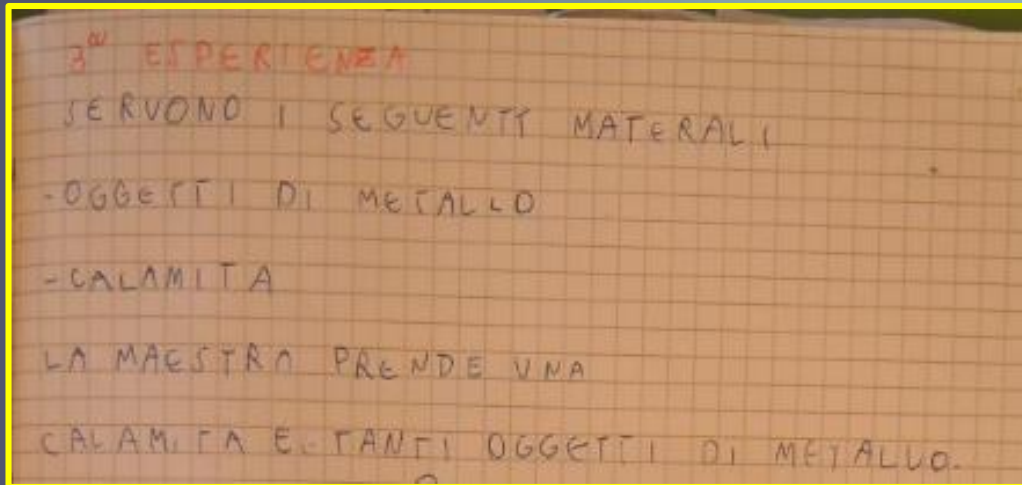 3ª ESPERIENZA
SERVONO I SEGUENTI MATERALI
-OGGETTI DI METALLO
-CALAMITA
LA MAESTRA PRENDE UNA
CALAMITA E TANTI OGGETTI DI METALLO.